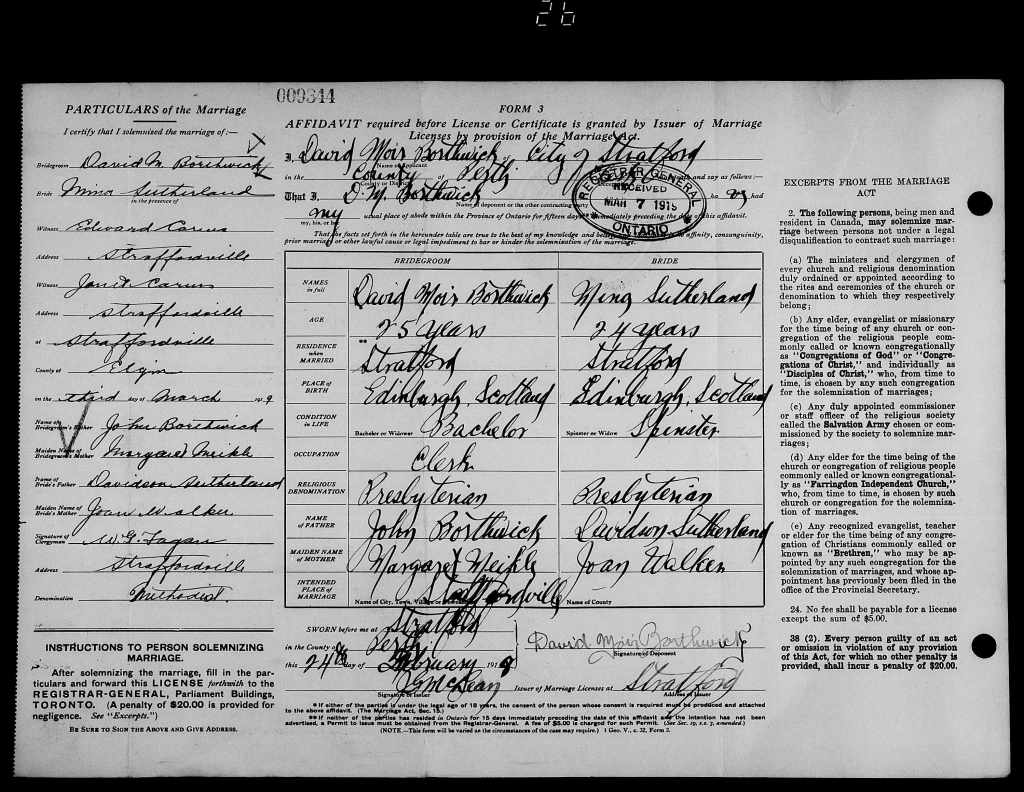 26
009344
PARTICULARS of the Marriage
I certify that I solemnized the marriage of:—
Bridegroom David M. Borthwick
Bride Mina Sutherland
in the presence of
Witness Edward
Address Straffordville
Witness
Address Straffordville
at Straffordville
County of Elgin
on the third day of March 1919
Name of Bridegroom's Father John Borthwick
Maiden Name of Bridegroom's Mother Margaret Meikle
Name of Bride's Father Davidson Sutherland
Maiden Name of Bride's Mother Joan Walker
Signature of Clergyman W. G. Fagan
Address Straffordville
Denomination Methodist.
INSTRUCTIONS TO PERSON SOLEMNIZING
MARRIAGE.
After solemnizing the marriage, fill in the par-
ticulars and forward this LICENSE forthwith to the
REGISTRAR-GENERAL, Parliament Buildings,
TORONTO. (A penalty of $20.00 is provided for
negligence. See "Excerpts.")
BE SURE TO SIGN THE ABOVE AND GIVE ADDRESS.
FORM 3
AFFIDAVIT required before License or Certificate is granted by Issuer of Marriage
Licenses by provision of the Marriage Act.
I, David Moir Borthwick of City of Stratford
Name of Applicant.
in the County of Perth and say as follows:—
County or District
That I, D. M. Borthwick ha as had
Name of deponent or the other contracting party
my usual place of abode within the Province of Ontario for fifteen days immediately preceding the date of this affidavit.
my, his, or her
That the facts set forth in the hereunder table are true to the best of my knowledge and belief affinity, consanguinity,
prior marriage or other lawful cause or legal impediment to bar or hinder the solemnization of the marriage.
REGISTRAR GENERAL
RECEIVED
MAR 7 1919
ONTARIO
BRIDEGROOM BRIDE
NAMES in full David Moir Borthwick Mina Sutherland
AGE 25 years 24 years
RESIDENCE when MARRIED Stratford Stratford
PLACE OF BIRTH Edinburgh, Scotland Edinburgh, Scotland
CONDITION IN LIFE Bachelor or Widower Bachelor Spinster or Widow Spinster
OCCUPATION Clerk
RELIGIOUS DENOMINATION Presbyterian Presbyterian
NAME OF FATHER John Borthwick Davidson Sutherland
MAIDEN NAME OF MOTHER Margaret Meikle Joan Walker
INTENDED PLACE OF MARRIAGE Straffordville
Name of City, Town, Village or Name of County
SWORN before me at Stratford
in the County of Perth
this 24th day of February 1919
David Moir Borthwick
Signature of Deponent
McDean
Signature of Issuer
Issuer of Marriage Licenses at Stratford
Address of Issuer
*If either of the parties is under the legal age of 18 years, the consent of the person whose consent is required must be produced and attached
to the above affidavit. (The Marriage Act, Sec. 15.)
**If neither of the parties has resided in Ontario for 15 days immediately preceding the date of this affidavit and the intention has not been
advertised, a Permit to issue must be obtained from the Registrar-General. A fee of $5.00 is charged for such Permit. (See Sec. 19, s.s. 7, amended.)
(NOTE.—This form will be varied as the circumstances of the case may require.) 1 Geo. V., c. 32, Form 3.
EXCERPTS FROM THE MARRIAGE
ACT
2. The following persons, being men and
resident in Canada, may solemnize mar-
riage between persons not under a legal
disqualification to contract such marriage:
(a) The ministers and clergymen of
every church and religious denomination
duly ordained or appointed according to
the rites and ceremonies of the church or
denomination to which they respectively
belong;
(b) Any elder, evangelist or missionary
for the time being of any church or con-
gregation of the religious people com-
monly called or known congregationally
as "Congregations of God" or "Congre-
gations of Christ," and individually as
"Disciples of Christ," who, from time to
time, is chosen by any such congregation
for the solemnization of marriages;
(c) Any duly appointed commissioner
or staff officer of the religious society
called the Salvation Army chosen or com-
missioned by the society to solemnize mar-
riages;
(d) Any elder for the time being of the
church or congregation of religious people
commonly called or known congregational-
ly as "Farringdon Independent Church,"
who, from time to time, is chosen by such
church or congregation for the solemniza-
tion of marriages.
(e) Any recognized evangelist, teacher
or elder for the time being of any con-
gregation of Christians commonly called or
known as "Brethren," who may be ap-
pointed by any such congregation for the
solemnization of marriages, and whose ap-
pointment has previously been filed in the
office of the Provincial Secretary.
24. No fee shall be payable for a license
except the sum of $5.00.
38 (2). Every person guilty of an act
or omission in violation of any provision
of this Act, for which no other penalty is
provided, shall incur a penalty of $20.00.